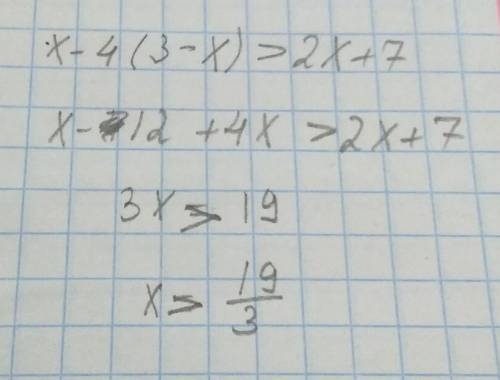 x-4(3-x)>2x+7
x-12+4x>2x+7
3x≥19
x≥19/3